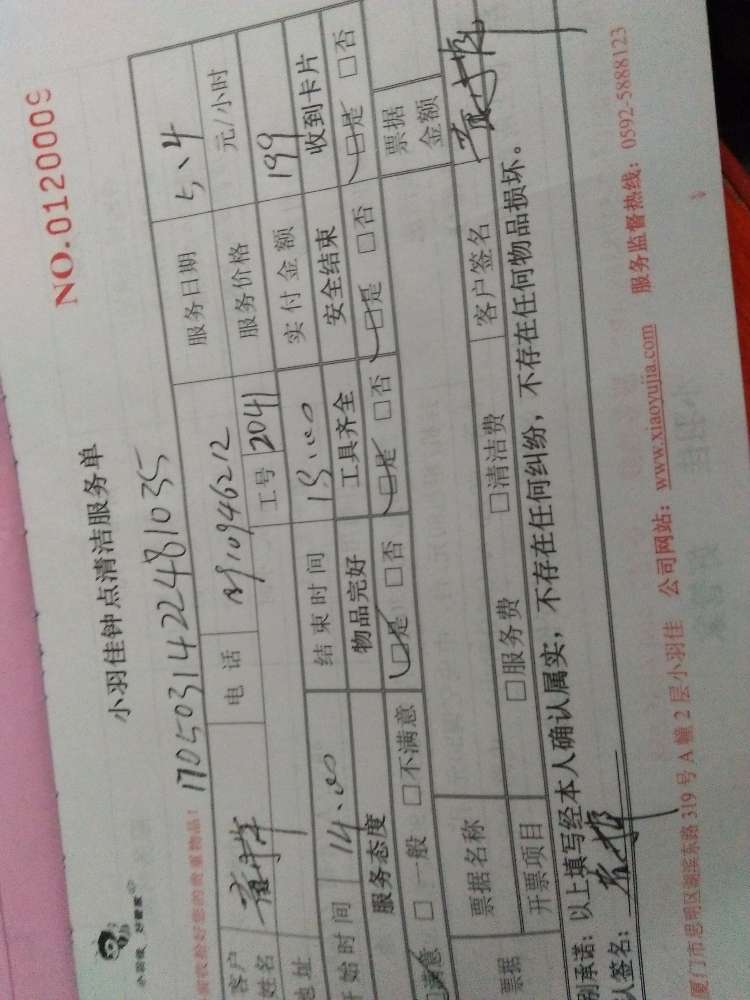 小羽佳 好管家
小羽佳钟点清洁服务单
NO.0120009
管好您的贵重物品！
1705031422481035
客户姓名
电话
服务日期 5、4
地址
工号 2041
服务价格 元/小时
开始时间 14:00
结束时间 18:00
实付金额 199
服务态度 物品完好 工具齐全 安全结束 收到卡片
☑满意 □一般 □不满意 ☑是 □否 ☑是 □否 ☑是 □否 ☑是 □否
票据 票据名称 票据金额
开票项目 □服务费 □清洁费 客户签名
别承诺：以上填写经本人确认属实，不存在任何纠纷，不存在任何物品损坏。
人签名：
厦门市思明区湖滨东路319号A幢2层小羽佳 公司网站：www.xiaoyujia.com 服务监督热线：0592-5888123